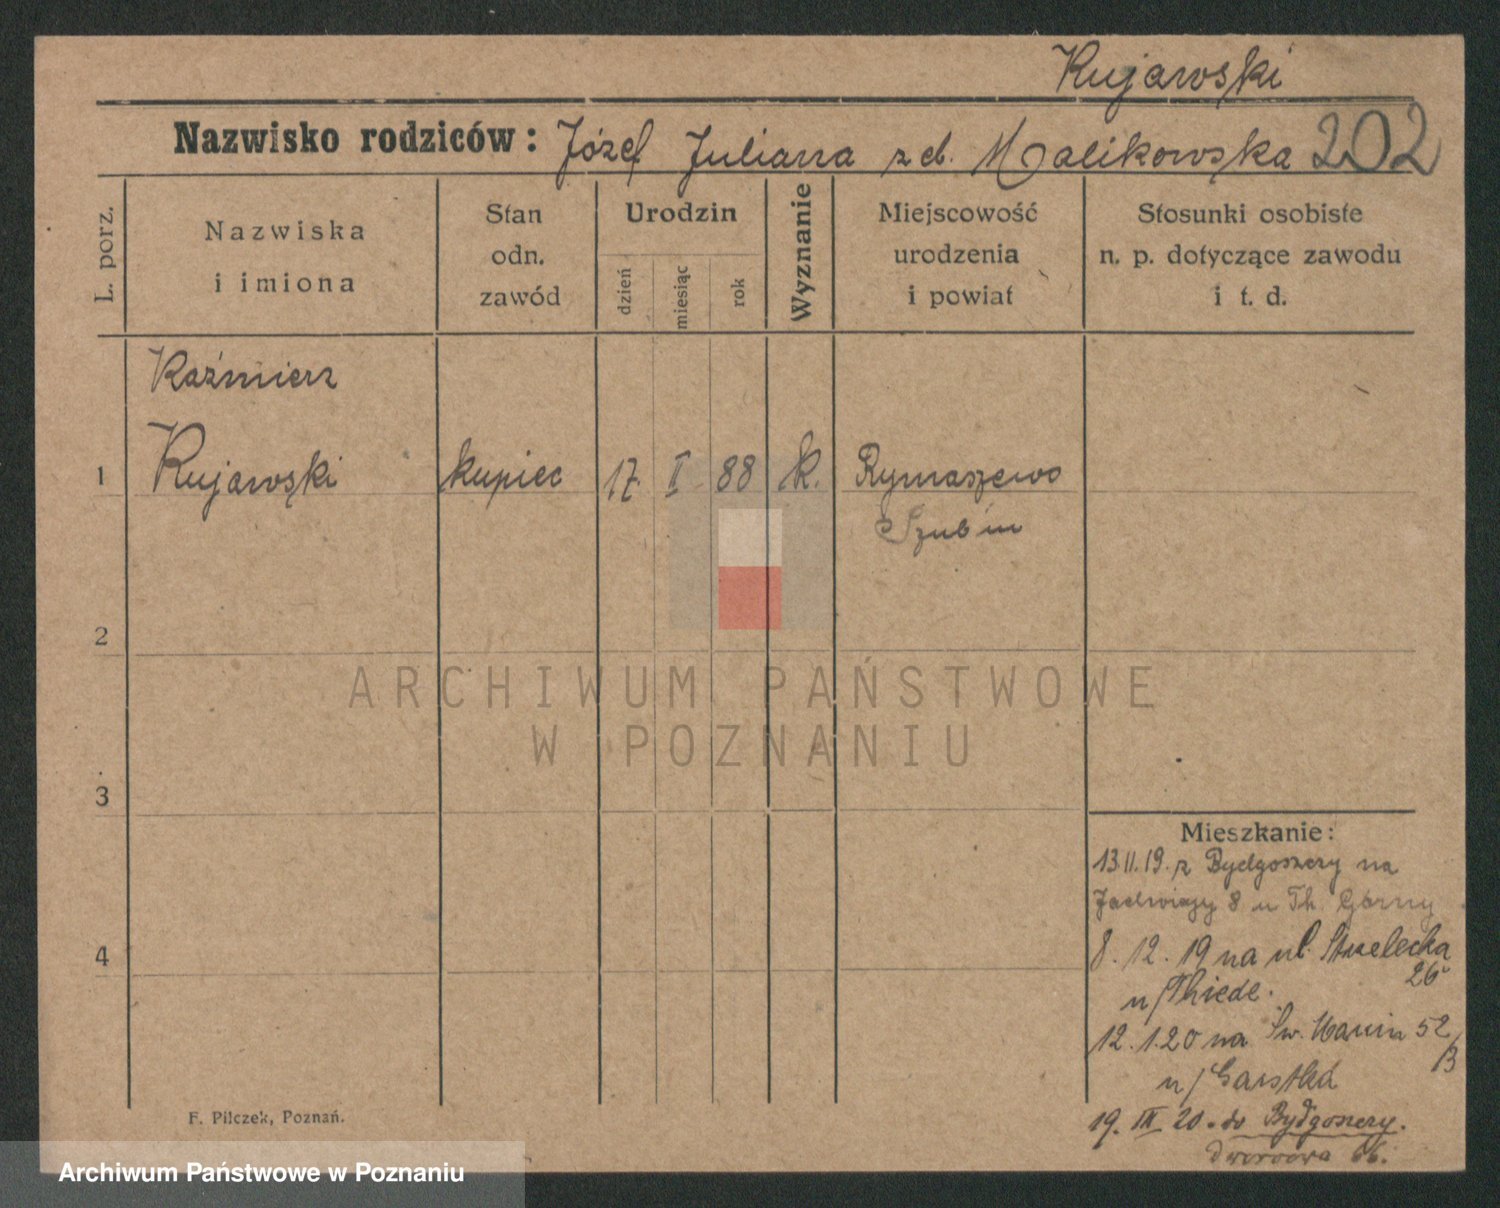 Kujawski
Nazwisko rodziców: Józef Julianna z d. Malikowska 202
L. porz.
Nazwiska
i imiona
Stan
odn.
zawód
Urodzin
dzień
miesiąc
rok
Wyznanie
Miejscowość
urodzenia
i powiat
Stosunki osobiste
n. p. dotyczące zawodu
i t. d.
Kaźmierz
1 Kujawski kupiec 17. II 88 k. Rymaszewo
Szubin
2
ARCHIWUM PAŃSTWOWE
W POZNANIU
3
Mieszkanie:
13.II.19. z Bydgoszczy na
8 u Th. Górny
4
8.12.19 na ul. Strzelecka
26
u/Thiede.
12.1.20 na Św. Marcin 52
u/
19. III 20. do Bydgoszczy.
Dworcowa 66.
F. Pilczek, Poznań.
Archiwum Państwowe w Poznaniu